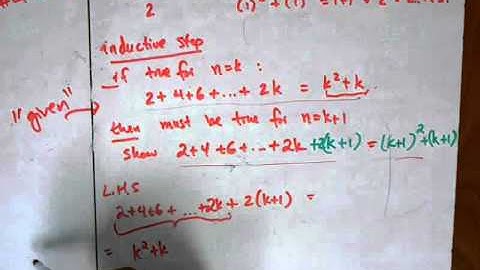 2 (1)² + (1) = 1+1 = 2
inductive step
if true for n=k :
2+4+6+...+2k = k²+k
"given"
then must be true for n=k+1
show 2+4+6+...+2k+2(k+1) = (k+1)²+(k+1)
L.H.S
2+4+6+...+2k+2(k+1) =
= k²+k